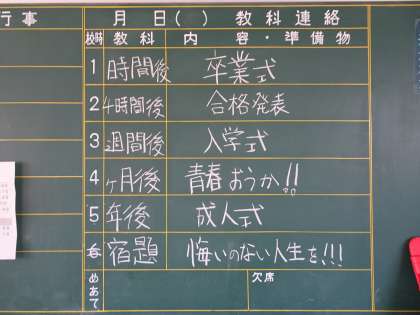 行事
月 日( ) 教科連絡
校時 教科 内容・準備物
1 時間後 卒業式
2 4時間後 合格発表
3 週間後 入学式
4 ヶ月後 青春おうか!!
5 年後 成人式
6 宿題 悔いのない人生を!!!
めあて 欠席